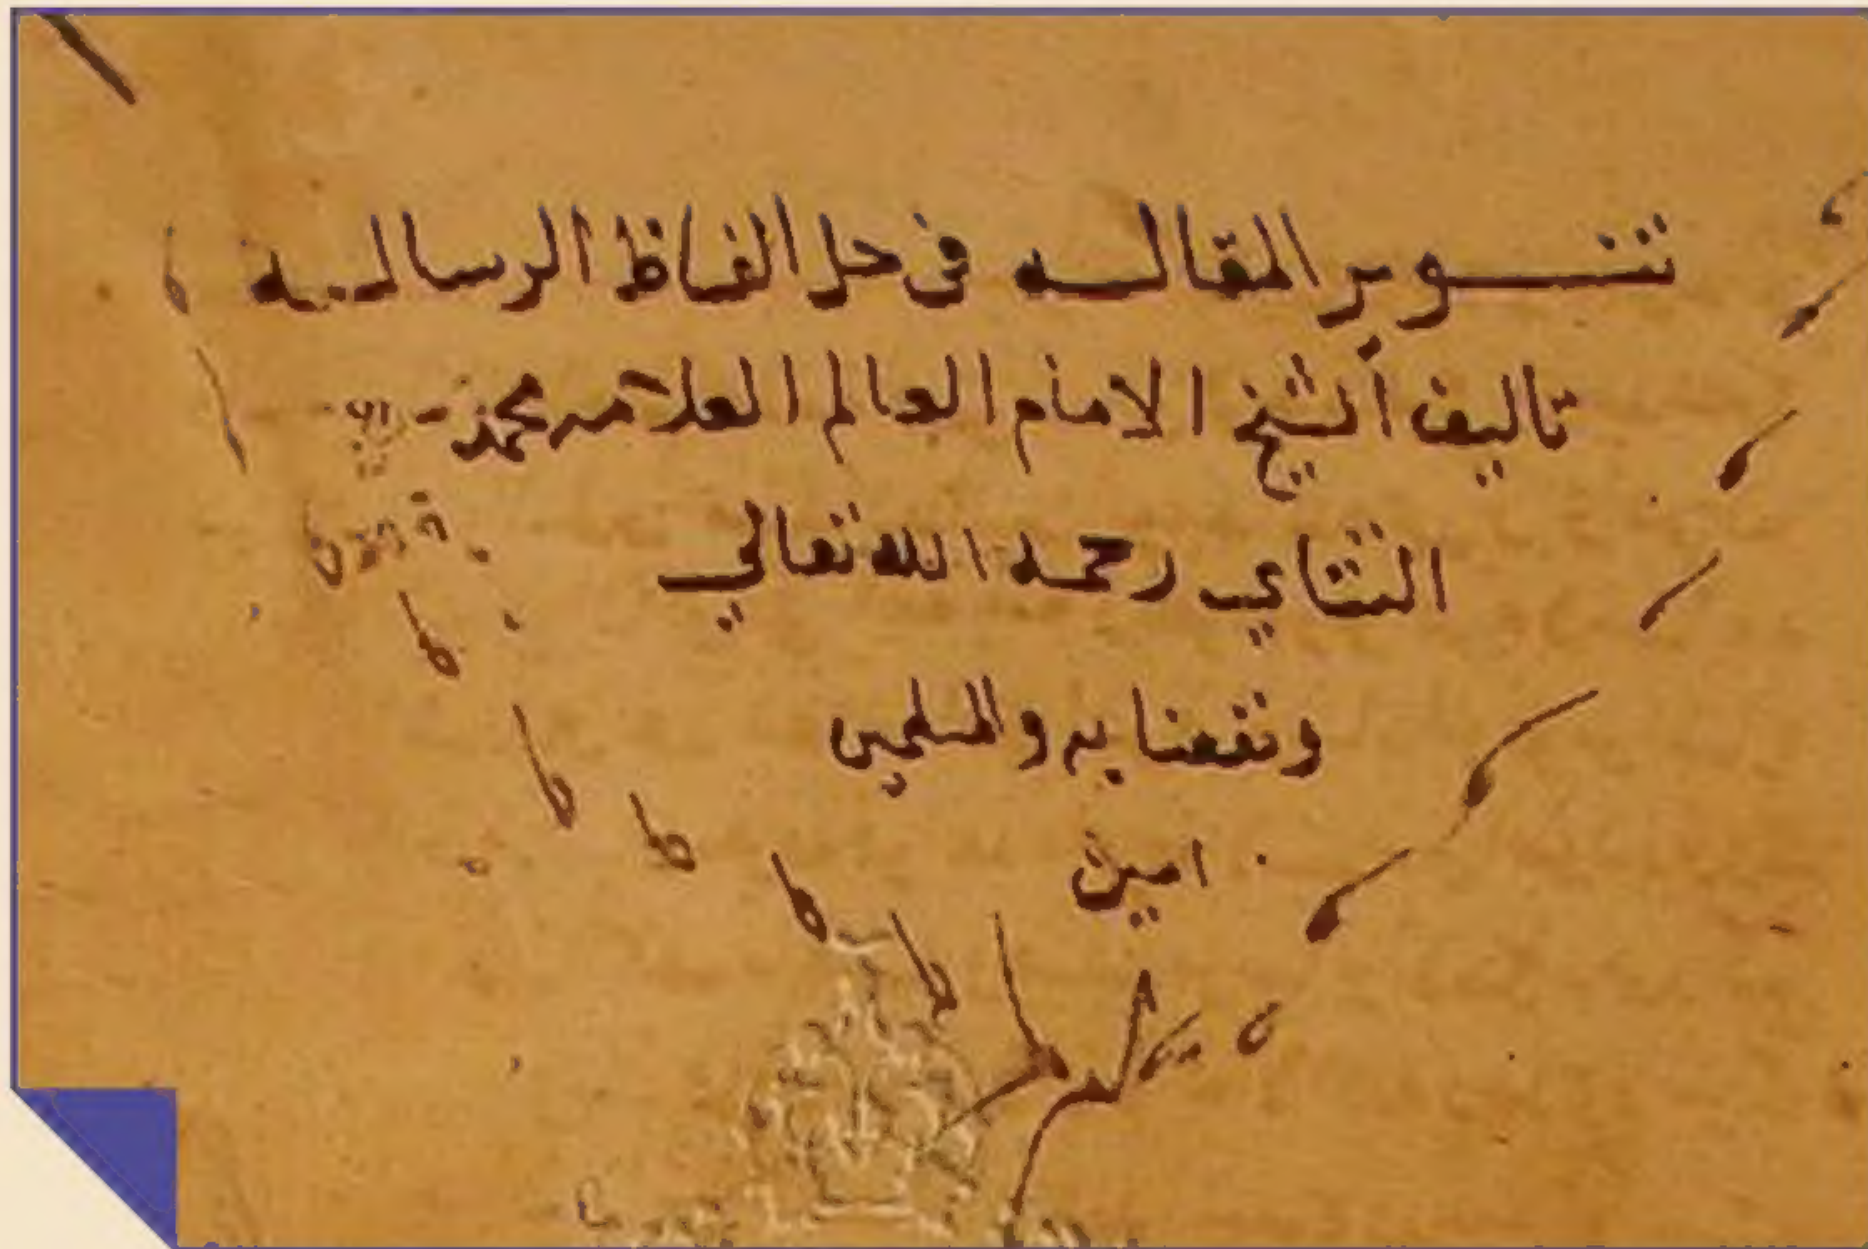 تنوير المقاله في حل الفاظ الرساله
تاليف الشيخ الامام العالم العلامه محمد
التتاي رحمه الله تعالي
ونفعنا به والمسلمين
امين